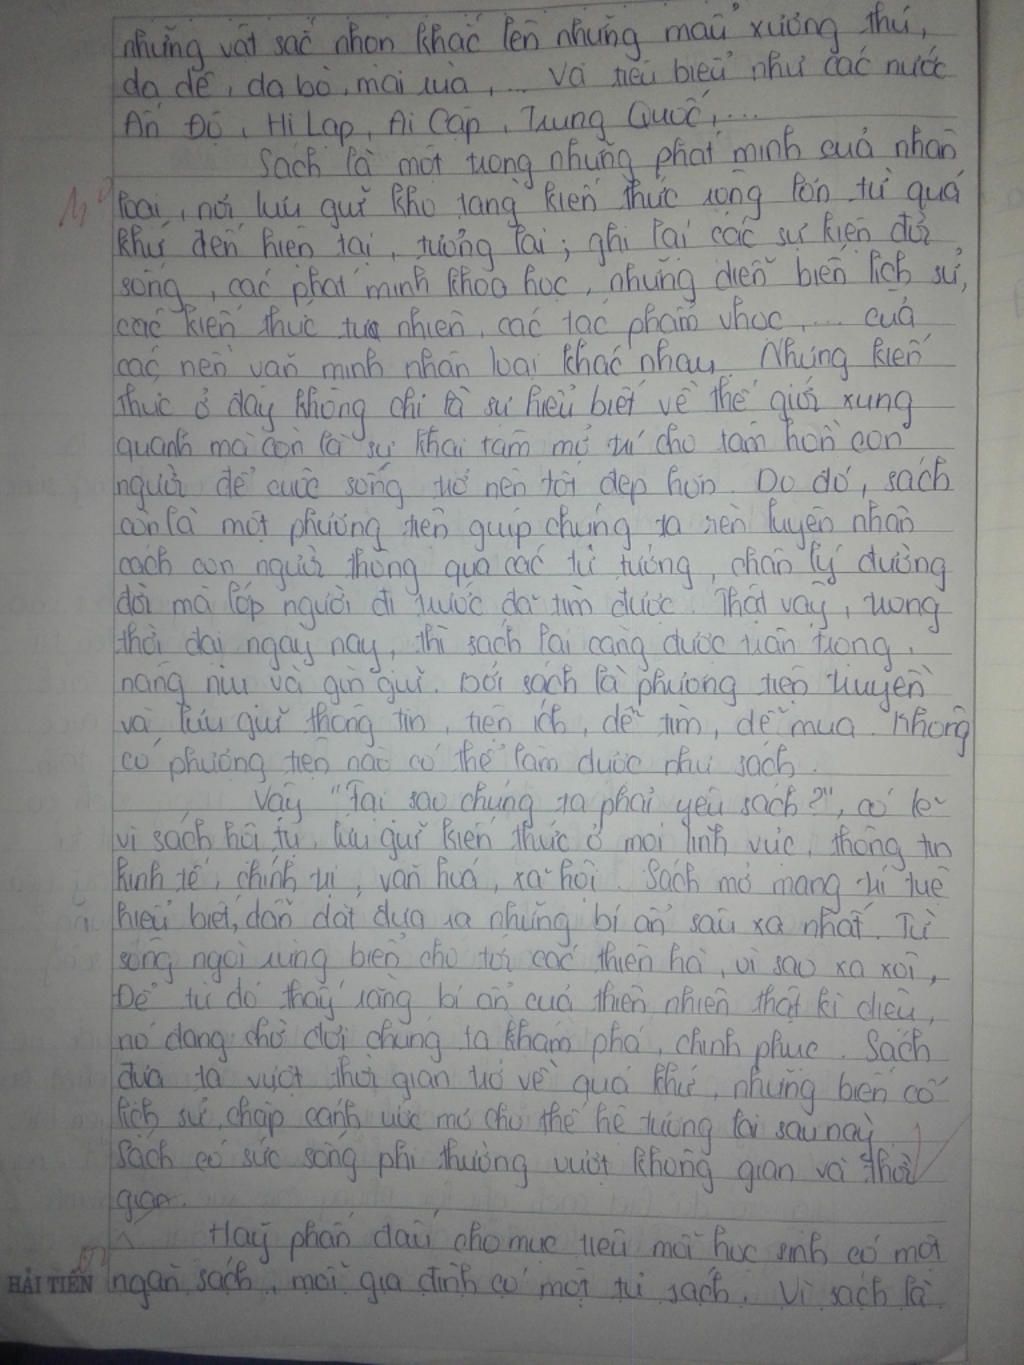 những vật sắc nhọn khắc lên những mẩu xương thú,
da dê, da bò, mai rùa, ... Và tiêu biểu như các nước
Ấn Độ, Hi Lạp, Ai Cập, Trung Quốc, ...
Sách là một trong những phát minh của nhân
loại, nơi lưu giữ kho tàng kiến thức rộng lớn từ quá
khứ đến hiện tại, tương lai; ghi lại các sự kiện đời
sống, các phát minh khoa học, những diễn biến lịch sử,
các kiến thức tự nhiên, các tác phẩm vhọc, ... của
các nền văn minh nhân loại khác nhau. Những kiến
thức ở đây không chỉ là sự hiểu biết về thế giới xung
quanh mà còn là sự khai tâm mở trí cho tâm hồn con
người để cuộc sống trở nên tốt đẹp hơn. Do đó, sách
còn là một phương tiện giúp chúng ta rèn luyện nhân
cách con người thông qua các tư tưởng, chân lý đường
đời mà lớp người đi trước đã tìm được. Thật vậy, trong
thời đại ngày nay, thì sách lại càng được trân trọng,
nâng niu và gìn giữ. Bởi sách là phương tiện truyền
và lưu giữ thông tin, tiện ích, dễ tìm, dễ mua. Không
có phương tiện nào có thể làm được như sách.
Vậy "Tại sao chúng ta phải yêu sách?", có lẽ
vì sách hội tụ, lưu giữ kiến thức ở mọi lĩnh vực, thông tin
kinh tế, chính trị, văn hoá, xã hội. Sách mở mang trí tuệ
hiểu biết, dẫn dắt đưa ra những bí ẩn sâu xa nhất. Từ
sông ngòi rừng biển cho tới các thiên hà, vì sao xa xôi,
Để từ đó thấy rằng bí ẩn của thiên nhiên thật kì diệu,
nó đang chờ đợi chúng ta khám phá, chinh phục. Sách
đưa ta vượt thời gian trở về quá khứ, những biến cố
lịch sử, chắp cánh ước mơ cho thế hệ tương lai sau này.
Sách có sức sống phi thường vượt không gian và thời
gian.
Hãy phấn đấu cho mục tiêu mỗi học sinh có một
HẢI TIẾN ngăn sách, mỗi gia đình có một tủ sách. Vì sách là